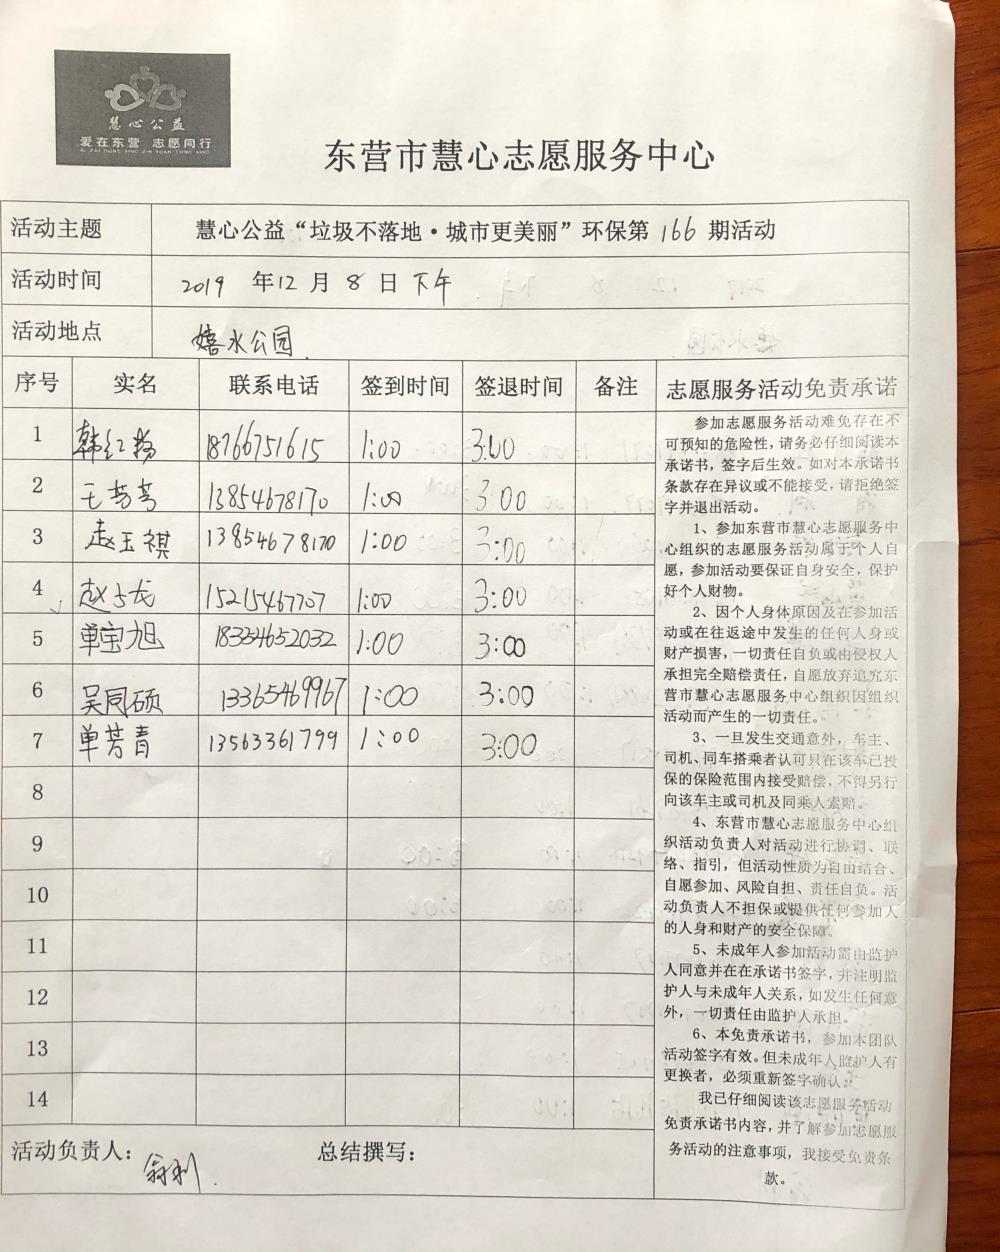 慧心公益
爱在东营 志愿同行
AI ZAI DONG YING ZHI YUAN TONG XING
东营市慧心志愿服务中心
活动主题 慧心公益“垃圾不落地·城市更美丽”环保第 166 期活动
活动时间 2019 年12 月 8 日 下午
活动地点 嬉水公园
序号 实名 联系电话 签到时间 签退时间 备注
1 韩红杨 18766751615 1:00 3:00
2 王芳芳 13854678170 1:00 3:00
3 赵玉祺 13854678170 1:00 3:00
4 赵占龙 15215467707 1:00 3:00
5 单宝旭 18354652032 1:00 3:00
6 吴同硕 13365469967 1:00 3:00
7 单芳青 13563361799 1:00 3:00
8
9
10
11
12
13
14
活动负责人： 总结撰写：
志愿服务活动免责承诺
参加志愿服务活动难免存在不
可预知的危险性，请务必仔细阅读本
承诺书，签字后生效。如对本承诺书
条款存在异议或不能接受，请拒绝签
字并退出活动。
1、参加东营市慧心志愿服务中
心组织的志愿服务活动属于个人自
愿，参加活动要保证自身安全，保护
好个人财物。
2、因个人身体原因及在参加活
动或在往返途中发生的任何人身或
财产损害，一切责任自负或由侵权人
承担完全赔偿责任，自愿放弃追究东
营市慧心志愿服务中心组织因组织
活动而产生的一切责任。
3、一旦发生交通意外，车主、
司机、同车搭乘者认可只在该车已投
保的保险范围内接受赔偿，不得另行
向该车主或司机及同乘人索赔。
4、东营市慧心志愿服务中心组
织活动负责人对活动进行协调、联
络、指引，但活动性质为自由结合、
自愿参加、风险自担、责任自负。活
动负责人不担保或提供任何参加人
的人身和财产的安全保障。
5、未成年人参加活动需由监护
人同意并在在承诺书签字，并注明监
护人与未成年人关系，如发生任何意
外，一切责任由监护人承担。
6、本免责承诺书，参加本团队
活动签字有效。但未成年人监护人有
更换者，必须重新签字确认。
我已仔细阅读该志愿服务活动
免责承诺书内容，并了解参加志愿服
务活动的注意事项，我接受免责条
款。